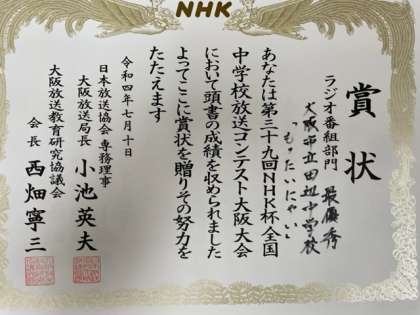 NHK
賞状
ラジオ番組部門 最優秀
「もったいにゃい」
大阪市立田辺中学校
あなたは第三十九回NHK杯全国
中学校放送コンテスト大阪大会
において頭書の成績を収められました
よってここに賞状を贈りその努力を
たたえます
令和四年七月十日
日本放送協会 専務理事
大阪放送局長 小池英夫
大阪放送教育研究協議会
会長 西畑寧三